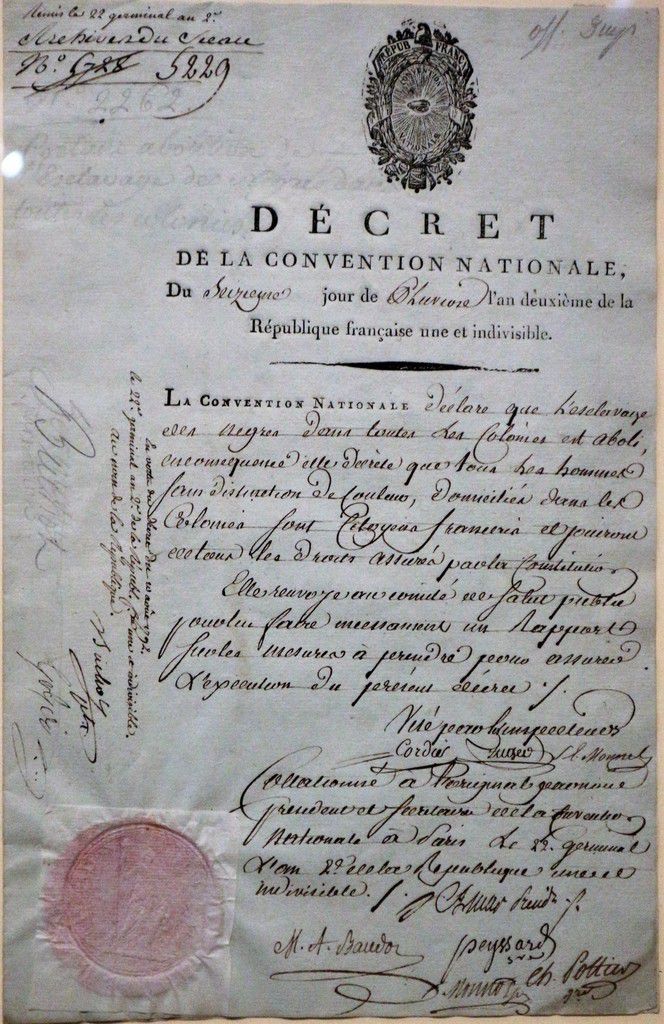 Remis le 22 germinal an 2e
Archives du Sceau
No 5229
2262
abolition de
l'esclavage des nègres dans
toutes les colonies
RÉPUB. FRANC.
DÉCRET
DE LA CONVENTION NATIONALE,
Du Seizieme jour de Pluviose l'an deuxième de la
République française une et indivisible.
LA CONVENTION NATIONALE déclare que l'esclavage
des negres dans toutes les Colonies est aboli,
en consequence elle décrete que tous les hommes
sans distinction de Couleur, domiciliés dans les
Colonies sont Citoyens français et jouiront
de tous les droits assurés par la Constitution
Elle renvoye au comité de Salut public
pour lui faire incessament un Rapport
sur les mesures à prendre pour assurer
l'exécution du présent décret ./.
Visé par les inspecteurs
Cordier S. E. Monnel
Collationné à l'original par nous
président et Secrétaires de la Convention
Nationale à Paris Le 22 Germinal
L'an 2e de la République une et
indivisible. ./.
Amar Presid.
M. A. Baudot peyssard
Monnot Ch. Pottier
en vertu du décret du 10 août 1792.
le 22e germinal an 2e de la républ. une et indivisible.
au nom de la République
Buchot
Gohier